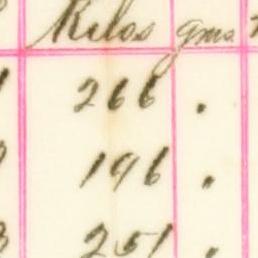 Kilos gms
266 .
196 .
251 .